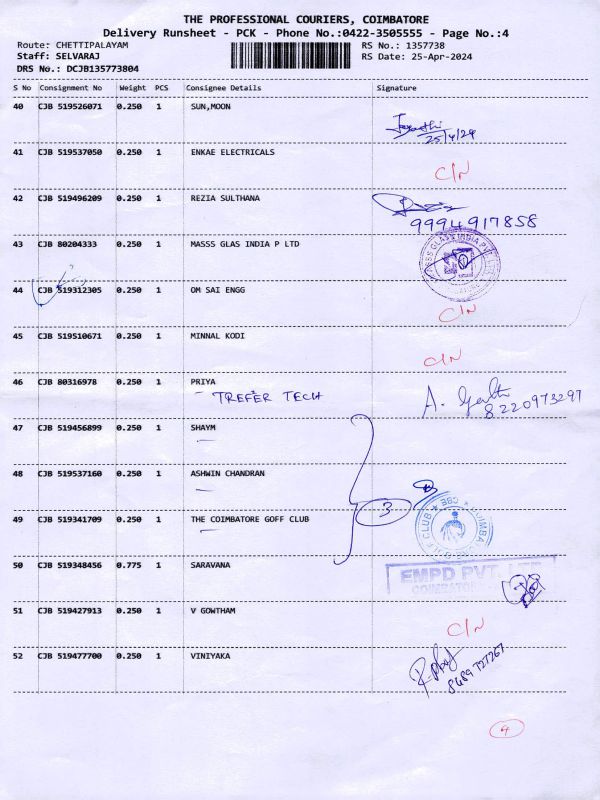 THE PROFESSIONAL COURIERS, COIMBATORE
Delivery Runsheet - PCK - Phone No.:0422-3505555 - Page No.:4
Route: CHETTIPALAYAM RS No.: 1357738
Staff: SELVARAJ RS Date: 25-Apr-2024
DRS No.: DCJB135773804
S No Consignment No Weight PCS Consignee Details Signature
40 CJB 519526071 0.250 1 SUN,MOON
25/4/24
41 CJB 519537050 0.250 1 ENKAE ELECTRICALS
C/N
42 CJB 519496209 0.250 1 REZIA SULTHANA
9994917858
43 CJB 80204333 0.250 1 MASSS GLAS INDIA P LTD
MASSS GLASS INDIA PVT
44 CJB 519312305 0.250 1 OM SAI ENGG
C/N
45 CJB 519510671 0.250 1 MINNAL KODI
C/N
46 CJB 80316978 0.250 1 PRIYA
TREFER TECH A.
8220973297
47 CJB 519456899 0.250 1 SHAYM
48 CJB 519537160 0.250 1 ASHWIN CHANDRAN
3
49 CJB 519341709 0.250 1 THE COIMBATORE GOFF CLUB
CLUB CBE COIMBA
50 CJB 519348456 0.775 1 SARAVANA
EMPD PVT. LTD
51 CJB 519427913 0.250 1 V GOWTHAM
C/N
52 CJB 519477700 0.250 1 VINIYAKA
8489727267
4